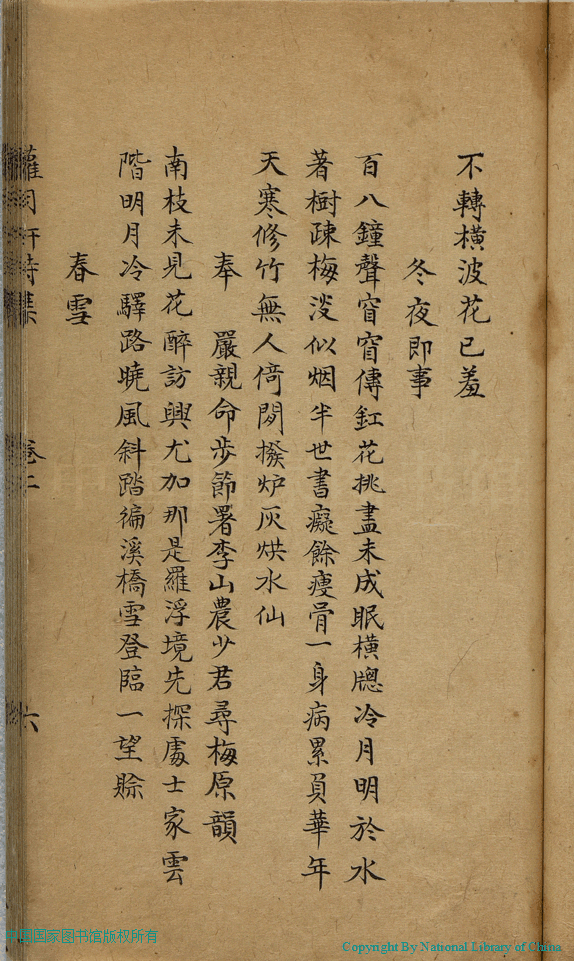 不轉橫波花已羞
冬夜即事
百八鐘聲窅窅傳釭花挑盡未成眠橫牕冷月明於水
著樹疎梅淡似烟半世書癡餘瘦骨一身病累負華年
天寒修竹無人倚閒撥炉灰烘水仙
奉 嚴親命步節署李山農少君尋梅原韻
南枝未見花醉訪興尤加那是羅浮境先探處士家雲
階明月冷驛路曉風斜踏徧溪橋雪登臨一望賒
春雪
軒詩集 卷二 六
中国国家图书馆版权所有
Copyright By National Library of China